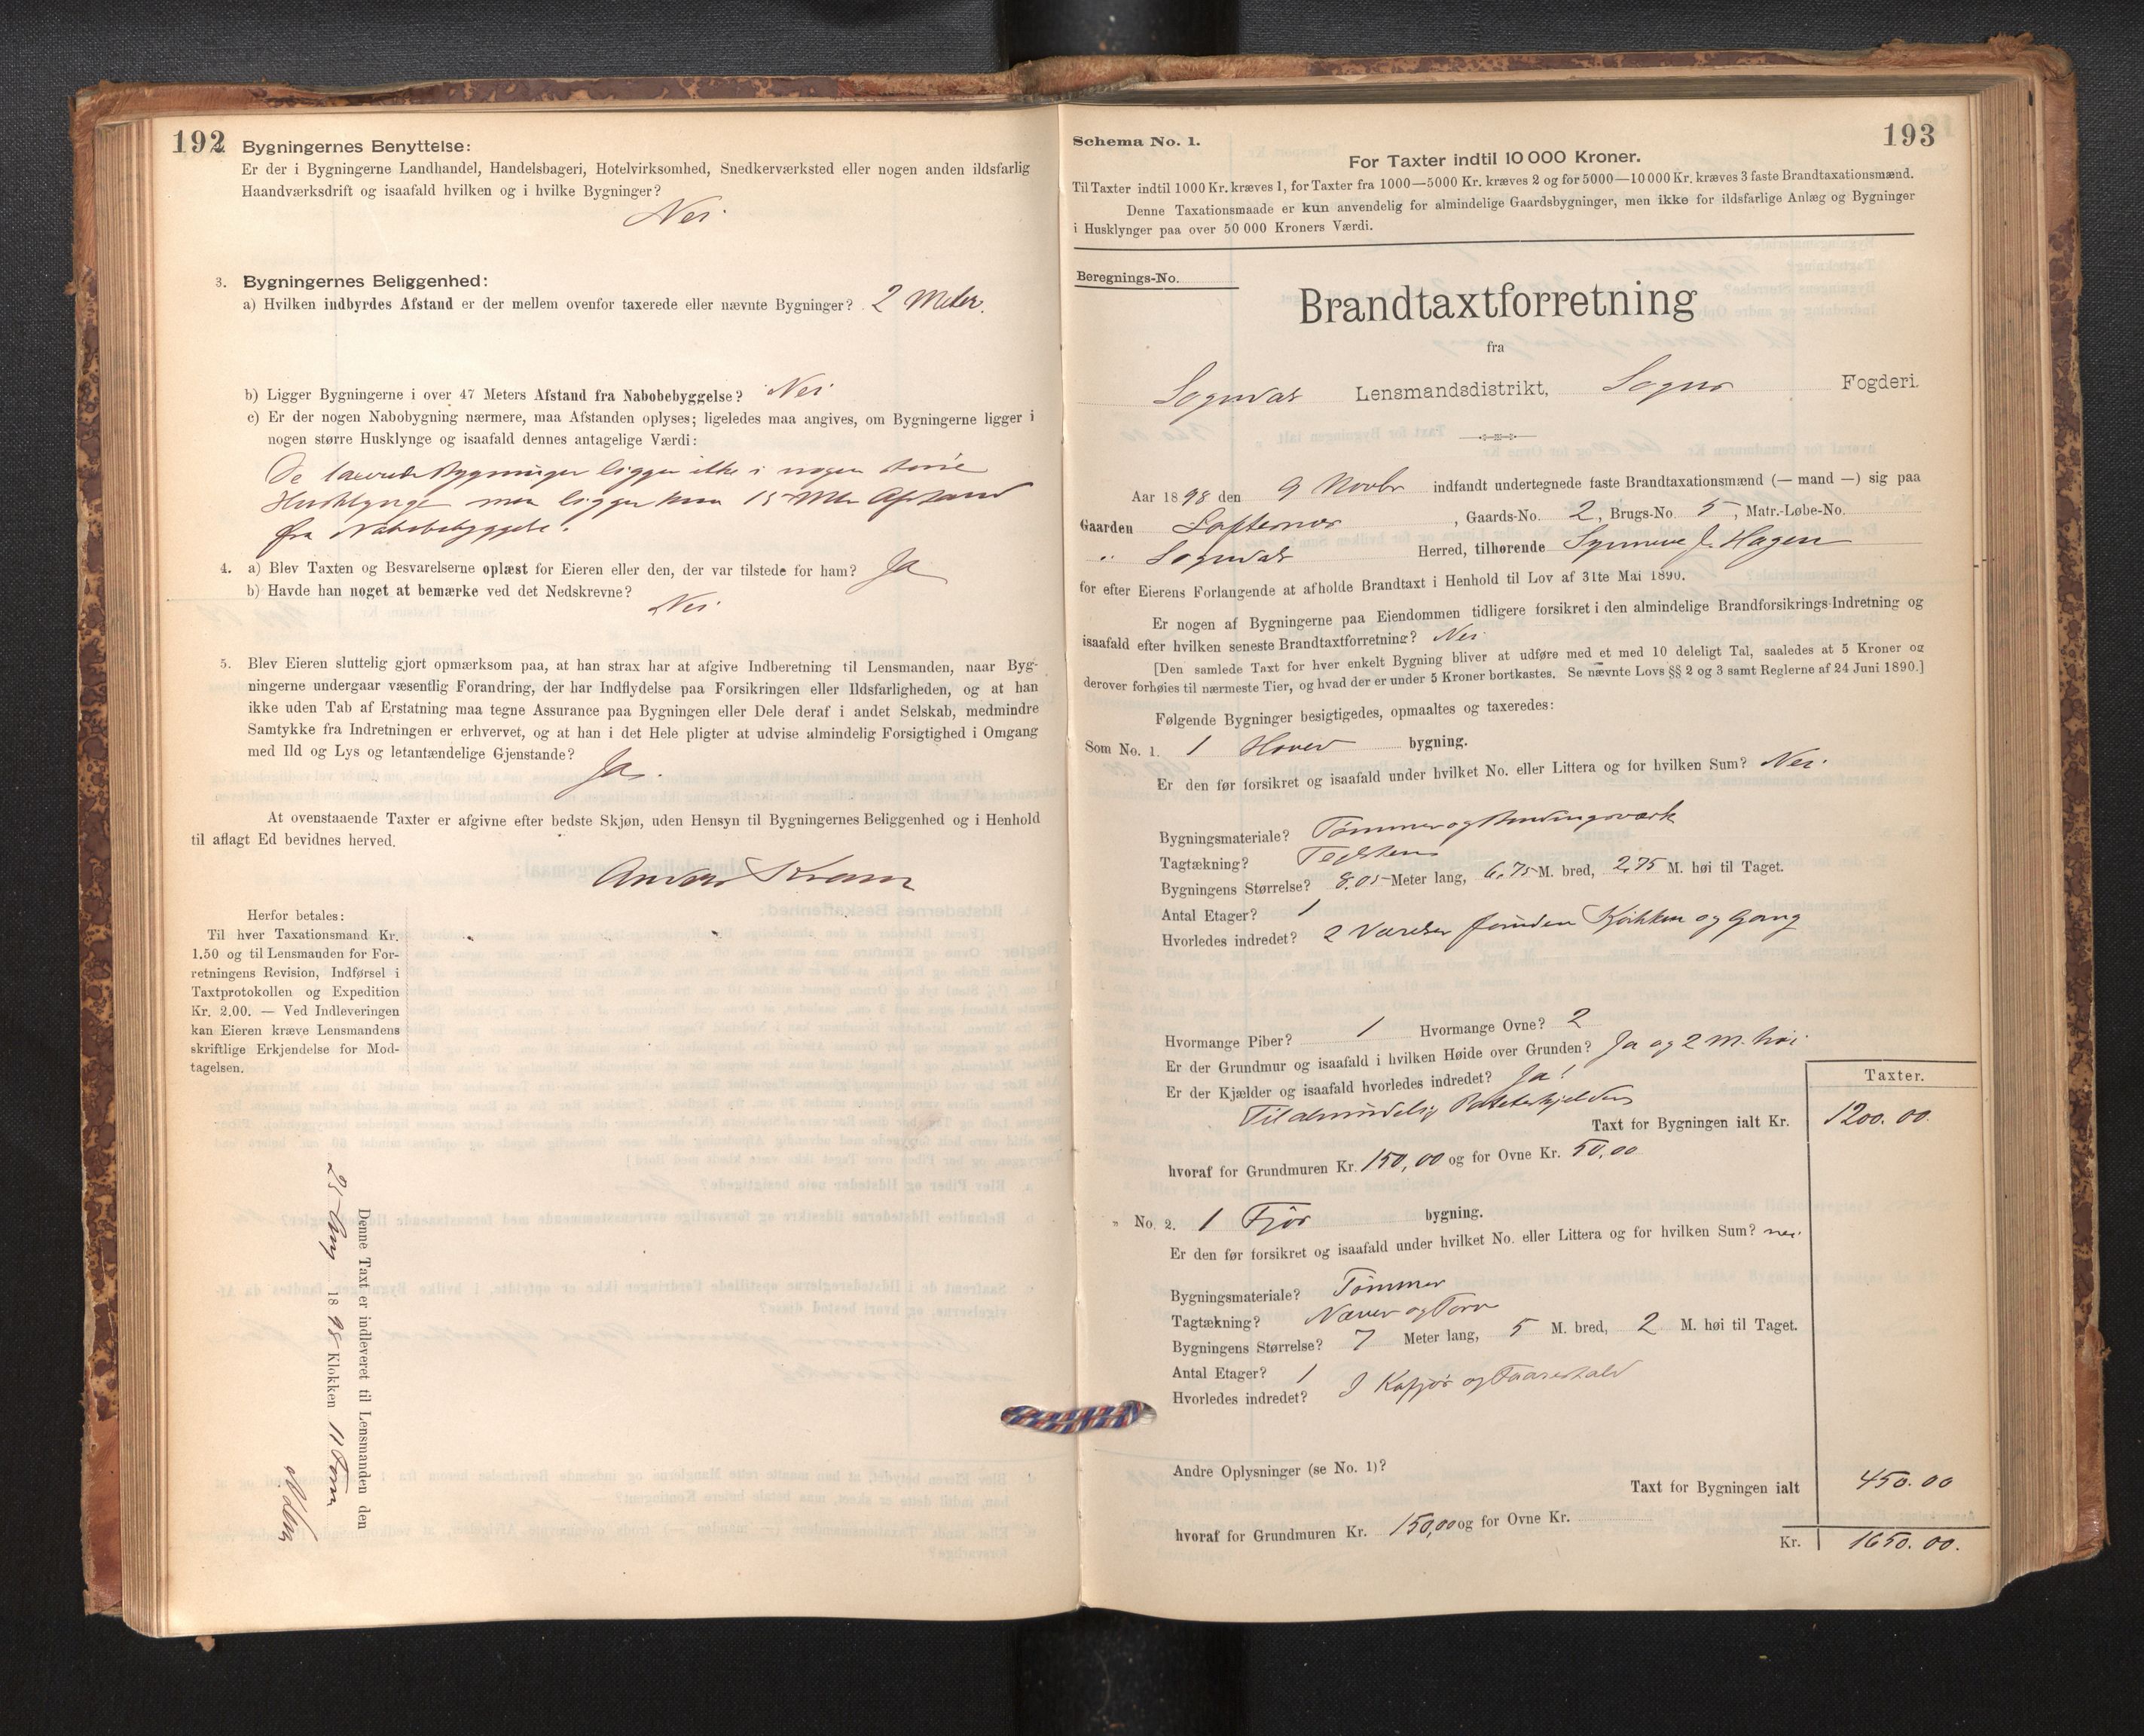 192
Bygningernes Benyttelse:
Er der i Bygningerne Landhandel, Handelsbageri, Hotelvirksomhed, Snedkerværksted eller nogen anden ildsfarlig
Haandværksdrift og isaafald hvilken og i hvilke Bygninger?
Nei.
3. Bygningernes Beliggenhed:
a) Hvilken indbyrdes Afstand er der mellem ovenfor taxerede eller nævnte Bygninger? 2 Meter.
b) Ligger Bygningerne i over 47 Meters Afstand fra Nabobebyggelse? Nei
c) Er der nogen Nabobygning nærmere, maa Afstanden oplyses; ligeledes maa angives, om Bygningerne ligger i
nogen større Husklynge og isaafald dennes antagelige Værdi:
De taxerede Bygninger ligger ikke i nogen større
Husklynge men ligger kun 15 Mtr Afstand
fra Nabobebyggelse.
4. a) Blev Taxten og Besvarelserne oplæst for Eieren eller den, der var tilstede for ham? Ja
b) Havde han noget at bemærke ved det Nedskrevne?
Nei
5. Blev Eieren sluttelig gjort opmærksom paa, at han strax har at afgive Indberetning til Lensmanden, naar Byg-
ningerne undergaar væsentlig Forandring, der har Indflydelse paa Forsikringen eller Ildsfarligheden, og at han
ikke uden Tab af Erstatning maa tegne Assurance paa Bygningen eller Dele deraf i andet Selskab, medmindre
Samtykke fra Indretningen er erhvervet, og at han i det Hele pligter at udvise almindelig Forsigtighed i Omgang
med Ild og Lys og letantændelige Gjenstande?
Ja.
At ovenstaaende Taxter er afgivne efter bedste Skjøn, uden Hensyn til Bygningernes Beliggenhed og i Henhold
til aflagt Ed bevidnes herved.
Herfor betales:
Til hver Taxationsmand Kr.
1.50 og til Lensmanden for For-
retningens Revision, Indførsel i
Taxtprotokollen og Expedition
Kr. 2.00. — Ved Indleveringen
kan Eieren kræve Lensmandens
skriftlige Erkjendelse for Mod-
tagelsen.
Denne Taxt er indleveret til Lensmanden den
1898 Klokken 11 Form
193
Schema No. 1.
For Taxter indtil 10 000 Kroner.
Til Taxter indtil 1000 Kr. kræves 1, for Taxter fra 1000—5000 Kr. kræves 2 og for 5000—10 000 Kr. kræves 3 faste Brandtaxationsmænd.
Denne Taxationsmaade er kun anvendelig for almindelige Gaardsbygninger, men ikke for ildsfarlige Anlæg og Bygninger
i Husklynger paa over 50 000 Kroners Værdi.
Beregnings-No.
Brandtaxtforretning
fra
Sogndal Lensmandsdistrikt, Sogns Fogderi.
Aar 1898 den 9 Novbr indfandt undertegnede faste Brandtaxationsmænd (— mand —) sig paa
Gaarden Loftesnes, Gaards-No. 2, Brugs-No. 5, Matr.-Løbe-No.
" Sogndal Herred, tilhørende Synneve J. Hagen
for efter Eierens Forlangende at afholde Brandtaxt i Henhold til Lov af 31te Mai 1890.
Er nogen af Bygningerne paa Eiendommen tidligere forsikret i den almindelige Brandforsikrings-Indretning og
isaafald efter hvilken seneste Brandtaxtforretning? Nei.
[Den samlede Taxt for hver enkelt Bygning bliver at udføre med et med 10 deleligt Tal, saaledes at 5 Kroner og
derover forhøies til nærmeste Tier, og hvad der er under 5 Kroner bortkastes. Se nævnte Lovs §§ 2 og 3 samt Reglerne af 24 Juni 1890.]
Følgende Bygninger besigtigedes, opmaaltes og taxeredes:
Som No. 1. 1 Hoved bygning.
Er den før forsikret og isaafald under hvilket No. eller Littera og for hvilken Sum? Nei.
Bygningsmateriale? Tømmer og Bindingsværk
Tagtækning? Teglsten
Bygningens Størrelse? 8.05 Meter lang, 6,75 M. bred, 2,75 M. høi til Taget.
Antal Etager? 1
Hvorledes indredet? 2 Værelser foruden Kjøkken og Gang
Hvormange Piber? 1 Hvormange Ovne? 2
Er der Grundmur og isaafald i hvilken Høide over Grunden? Ja og 2 M. høi.
Er der Kjælder og isaafald hvorledes indredet? Ja!
Tilalmindelig Potetkjelder
Taxter.
Taxt for Bygningen ialt Kr. 1200.00.
hvoraf for Grundmuren Kr. 150,00 og for Ovne Kr. 50,00
" No. 2. 1 Fjøs bygning.
Er den før forsikret og isaafald under hvilket No. eller Littera og for hvilken Sum? nei.
Bygningsmateriale? Tømmer
Tagtækning? Næver og Torv
Bygningens Størrelse? 7 Meter lang, 5 M. bred, 2 M. høi til Taget.
Antal Etager? 1
Hvorledes indredet? I Kofjøs og Faarestald
Andre Oplysninger (se No. 1)?
Taxt for Bygningen ialt 450.00
hvoraf for Grundmuren Kr. 150,00 og for Ovne Kr.
Kr. 1650.00.